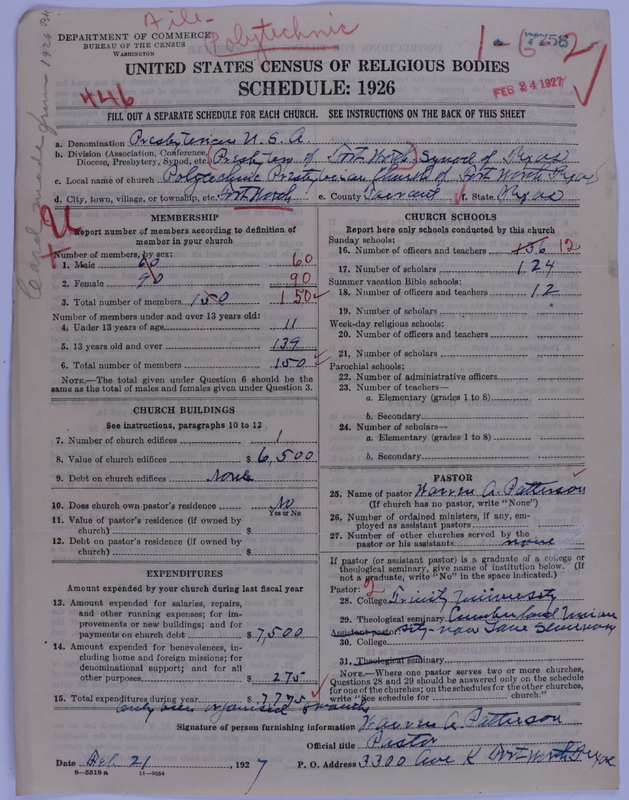 File-
Polytechnic
DEPARTMENT OF COMMERCE
BUREAU OF THE CENSUS
WASHINGTON
1-6-27
7758
UNITED STATES CENSUS OF RELIGIOUS BODIES
SCHEDULE: 1926
FEB 24 1927
446
FILL OUT A SEPARATE SCHEDULE FOR EACH CHURCH. SEE INSTRUCTIONS ON THE BACK OF THIS SHEET
a. Denomination Presbyterian U.S.A
b. Division (Association, Conference, Diocese, Presbytery, Synod, etc. Presbytery of Fort Worth) Synod of Texas
c. Local name of church Polytechnic Presbyterian Church of Fort Worth Texas
d. City, town, village, or township, etc. Fort Worth e. County Tarrant f. State Texas
MEMBERSHIP
Report number of members according to definition of
member in your church
Number of members, by sex:
1. Male 60 60
2. Female 90 90
3. Total number of members 150 150
Number of members under and over 13 years old:
4. Under 13 years of age 11
5. 13 years old and over 139
6. Total number of members 150
NOTE.—The total given under Question 6 should be
the same as the total of males and females given under Question 3.
CHURCH BUILDINGS
See instructions, paragraphs 10 to 12
7. Number of church edifices 1
8. Value of church edifices $ 6,500
9. Debt on church edifices None
10. Does church own pastor's residence No
Yes or No
11. Value of pastor's residence (if owned by
church) $
12. Debt on pastor's residence (if owned by
church) $
EXPENDITURES
Amount expended by your church during last fiscal year
13. Amount expended for salaries, repairs,
and other running expenses; for im-
provements or new buildings; and for
payments on church debt $ 7,500
14. Amount expended for benevolences, in-
cluding home and foreign missions; for
denominational support; and for all
other purposes $ 275
15. Total expenditures during year $ 7775
only been organized months
CHURCH SCHOOLS
Report here only schools conducted by this church
Sunday schools:
16. Number of officers and teachers 136 12
17. Number of scholars 124
Summer vacation Bible schools:
18. Number of officers and teachers 12
19. Number of scholars
Week-day religious schools:
20. Number of officers and teachers
21. Number of scholars
Parochial schools:
22. Number of administrative officers
23. Number of teachers—
a. Elementary (grades 1 to 8)
b. Secondary
24. Number of scholars—
a. Elementary (grades 1 to 8)
b. Secondary
PASTOR
25. Name of pastor Warren A. Patterson
(If church has no pastor, write "None")
26. Number of ordained ministers, if any, em-
ployed as assistant pastors
27. Number of other churches served by the
pastor or his assistants none
If pastor (or assistant pastor) is a graduate of a college or
theological seminary, give name of institution below. (If
not a graduate, write "No" in the space indicated.)
Pastor: 2
28. College Trinity University
29. Theological seminary Cumberland Univer
Assistant pastor: sity-now Lane Seminary
30. College
31. Theological seminary
NOTE.—Where one pastor serves two or more churches,
Questions 28 and 29 should be answered only on the schedule
for one of the churches; on the schedules for the other churches,
write "See schedule for church."
Signature of person furnishing information Warren A. Patterson
Official title Pastor
Date Feb. 21, 1927 P. O. Address 3300 Ave K Fort Worth Texas
8—5518 a 11—9054